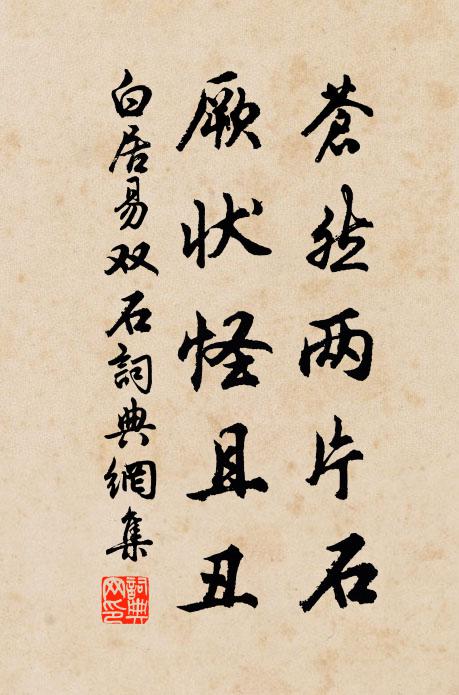 蒼然两片石
厥状怪且丑
白居易双石詞典網集
詞典网印